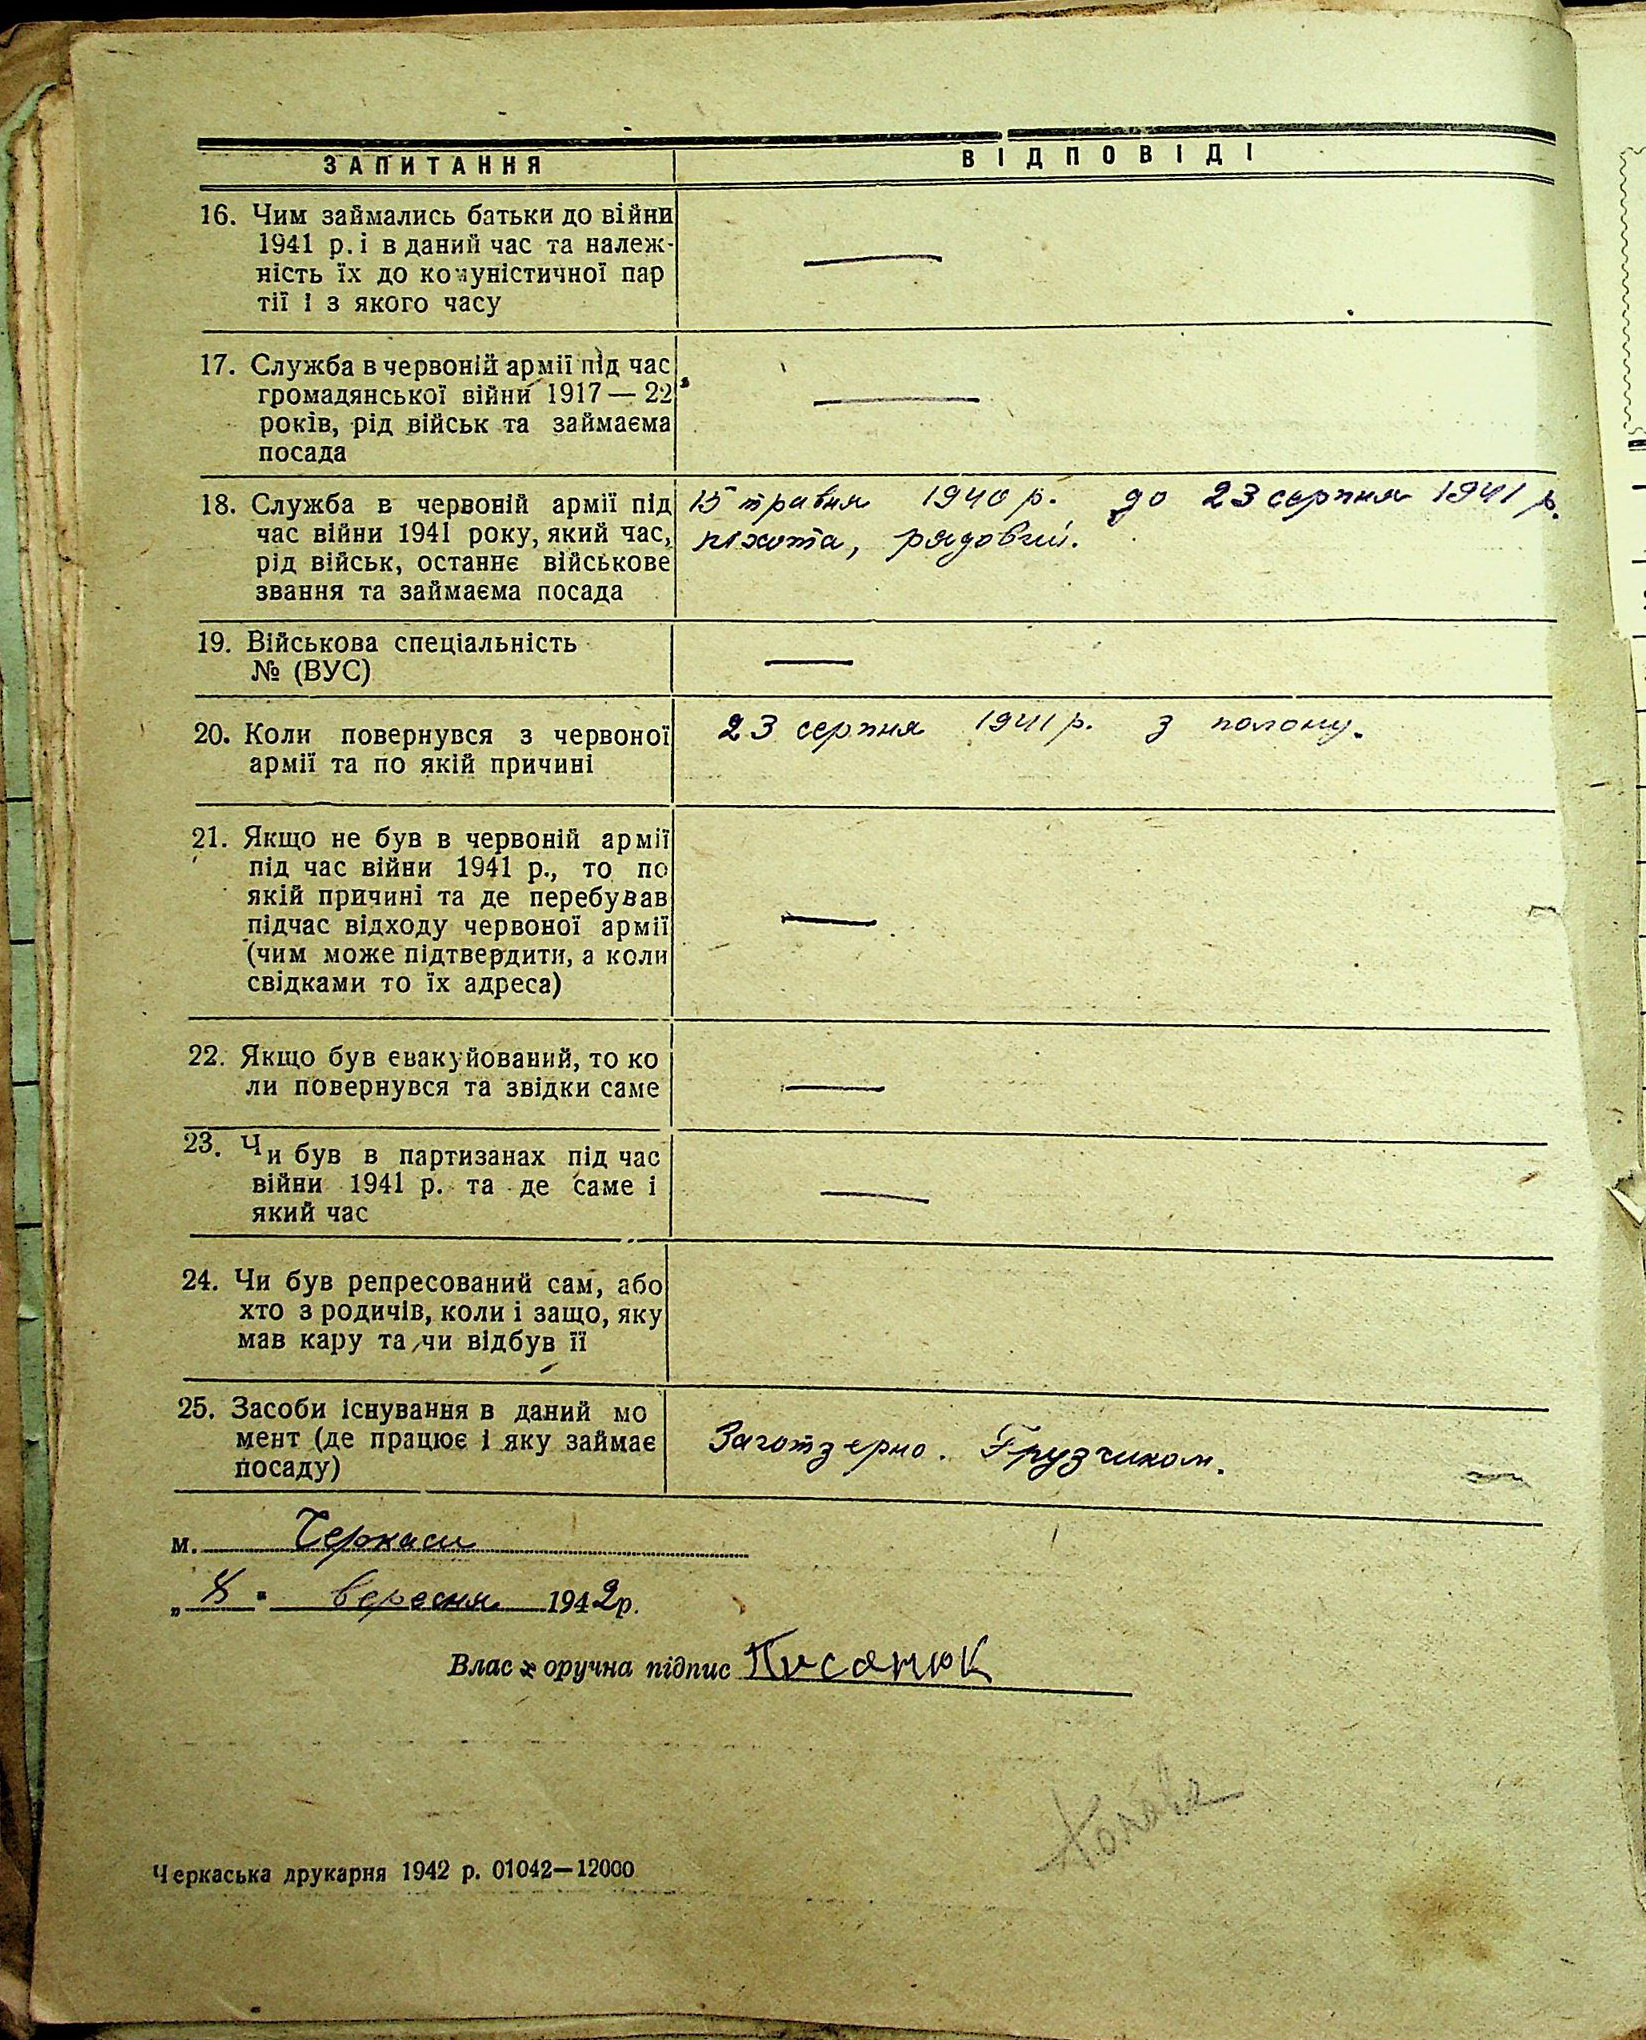 ЗАПИТАННЯ ВІДПОВІДІ
16. Чим займались батьки до війни
1941 р. і в даний час та належ-
ність їх до комуністичної пар
тії і з якого часу
17. Служба в червоній армії під час
громадянської війни 1917—22
років, рід військ та займаєма
посада
18. Служба в червоній армії під
час війни 1941 року, який час,
рід військ, останнє військове
звання та займаєма посада
15 травня 1940 р. до 23 серпня 1941 р.
піхота, рядовий.
19. Військова спеціальність
№ (ВУС)
20. Коли повернувся з червоної
армії та по якій причині
23 серпня 1941 р. з полону.
21. Якщо не був в червоній армії
під час війни 1941 р., то по
якій причині та де перебував
підчас відходу червоної армії
(чим може підтвердити, а коли
свідками то їх адреса)
22. Якщо був евакуйований, то ко
ли повернувся та звідки саме
23. Чи був в партизанах під час
війни 1941 р. та де саме і
який час
24. Чи був репресований сам, або
хто з родичів, коли і защо, яку
мав кару та чи відбув її
25. Засоби існування в даний мо
мент (де працює і яку займає
посаду)
Заготзерно. Грузчиком.
м. Черкаси
„8" вересня 1942 р.
Влас оручна підпис Писанюк
Черкаська друкарня 1942 р. 01042—12000